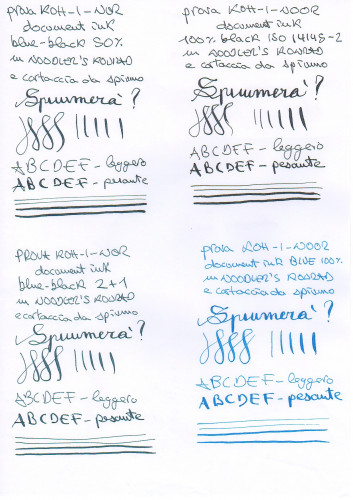 prova KOH-I-NOOR
document ink
blue-black 50%
in NOODLER'S KONRAD
e cartaccia da spiumo
Spiumerà?
ABCDEF - leggero
ABCDEF - pesante
prova KOH-I-NOOR
document ink
100% black ISO 14145-2
in NOODLER'S KONRAD
e cartaccia da spiumo
Spiumerà?
ABCDEF - leggero
ABCDEF - pesante
PROVA KOH-I-NOOR
document ink
blue-black 2+1
in NOODLER'S KONRAD
e cartaccia da spiumo
Spiumerà?
ABCDEF - leggero
ABCDEF - pesante
prova KOH-I-NOOR
document ink BLUE 100%
in NOODLER'S KONRAD
e cartaccia da spiumo
Spiumerà?
ABCDEF - leggero
ABCDEF - pesante